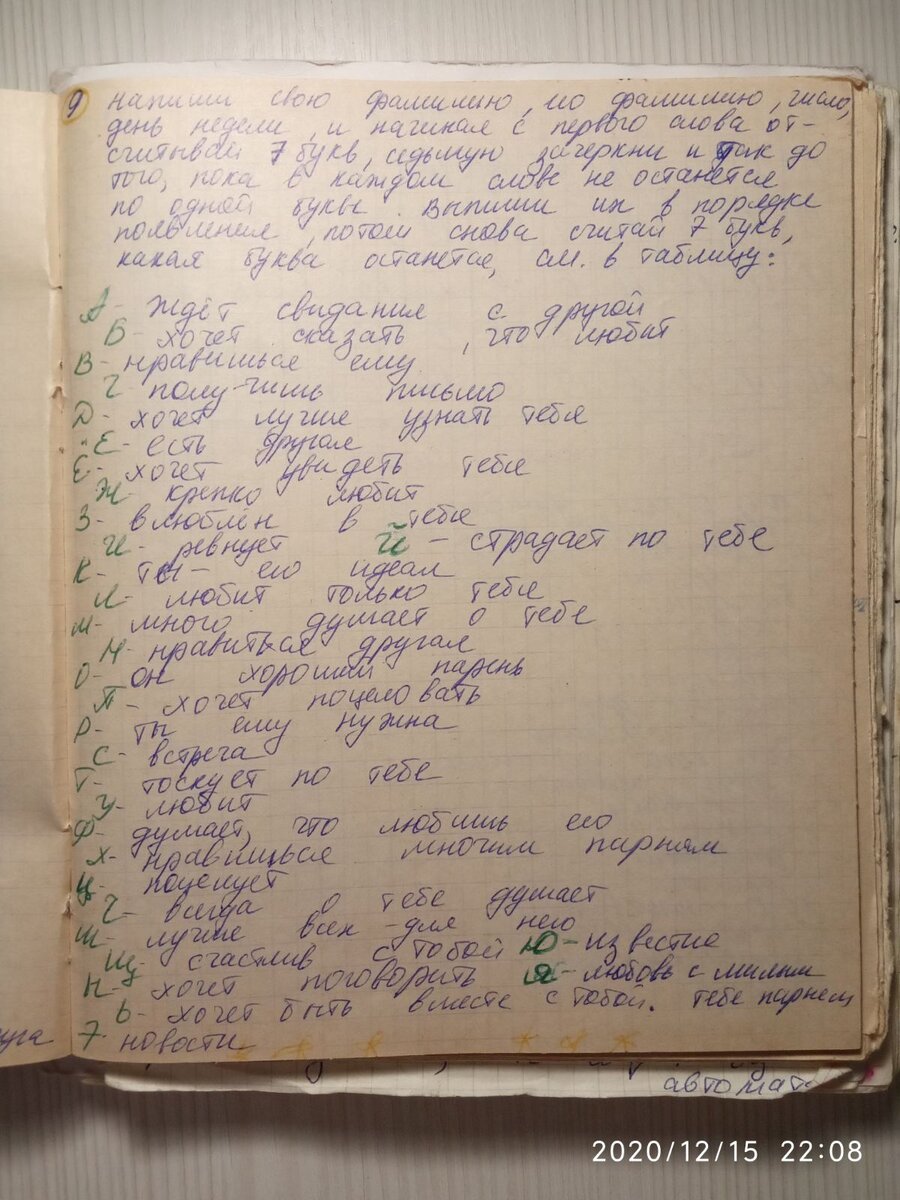 9 напиши свою фамилию, его фамилию, число,
день недели, и начиная с первого слова от-
считывай 7 букв, седьмую зачеркни и так до
того, пока в каждом слове не останется
по одной букве. Выпиши их в порядке
появления, потом снова считай 7 букв,
какая буква останется, см. в таблицу:
А - ждёт свидания с другой
Б - хочет сказать, что любит
В - нравишься ему
Г - получишь письмо
Д - хочет лучше узнать тебя
Е - есть другая
Ё - хочет увидеть тебя
Ж - крепко любит
З - влюблён в тебя
И - ревнует Й - страдает по тебе
К - ты - его идеал
Л - любит только тебя
М - много думает о тебе
Н - нравиться другая
О - он хороший парень
П - хочет поцеловать
Р - ты ему нужна
С - встреча
Т - тоскует по тебе
У - любит
Ф - думает, что любишь его
Х - нравишься многим парням
Ц - поцелует
Ч - всегда о тебе думает
Ш - лучше всех - для него
Щ - счастлив с тобой Ю - известие
хочет поговорить Я - любовь с милым
Ь - хочет быть вместе с тобой. тебе парнем
новости
уга
автомат
2020/12/15 22:08